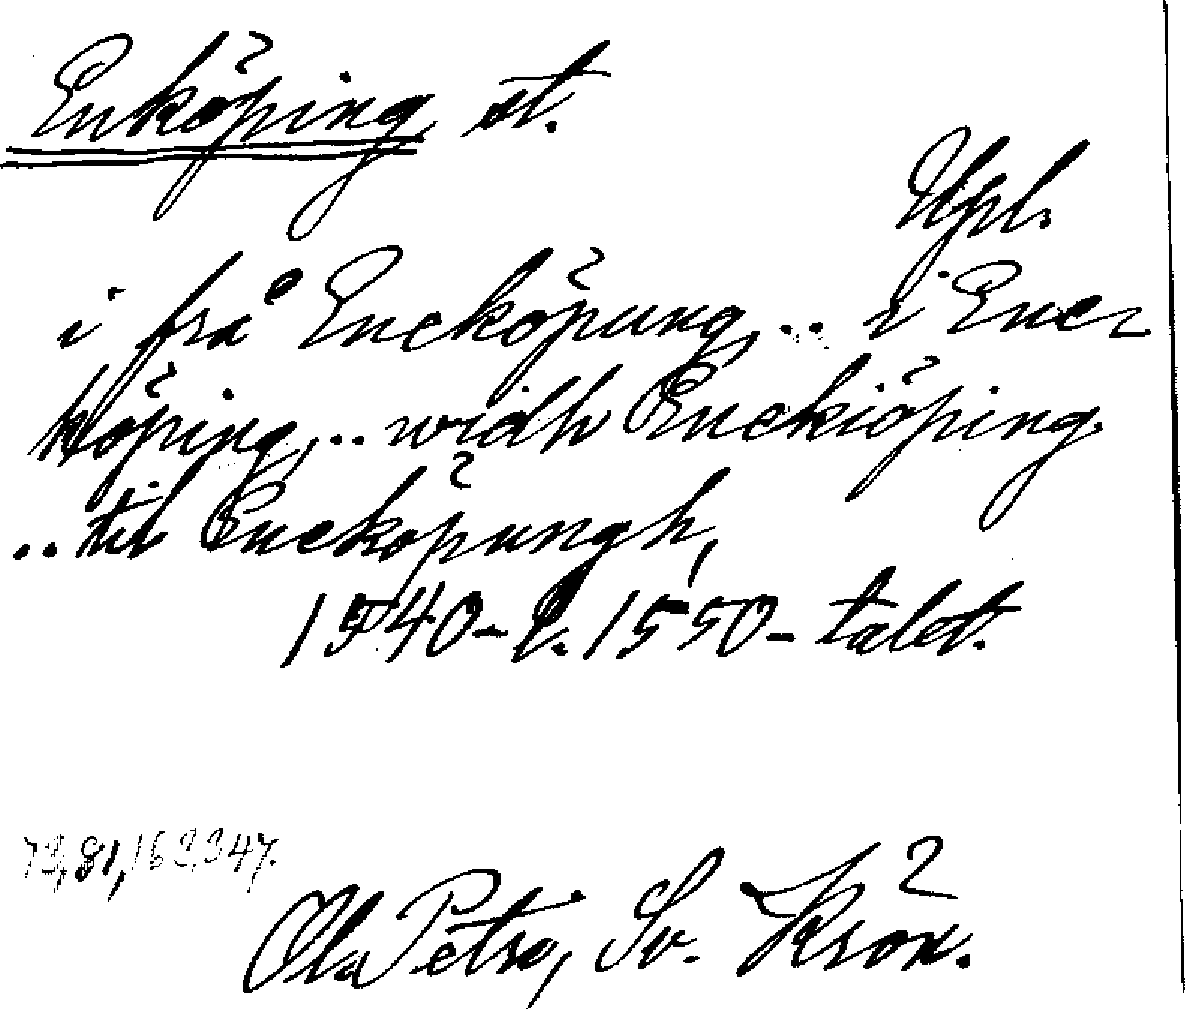 Enköping st.
Upl.
i frå Enekôpung, .. i Ene-
köping, .. widh Eneckiöping
.. til Enekôpungh,
1540- l. 1550-talet.
73, 81, 162, 347.
Ola Petri, Sv. Krön.